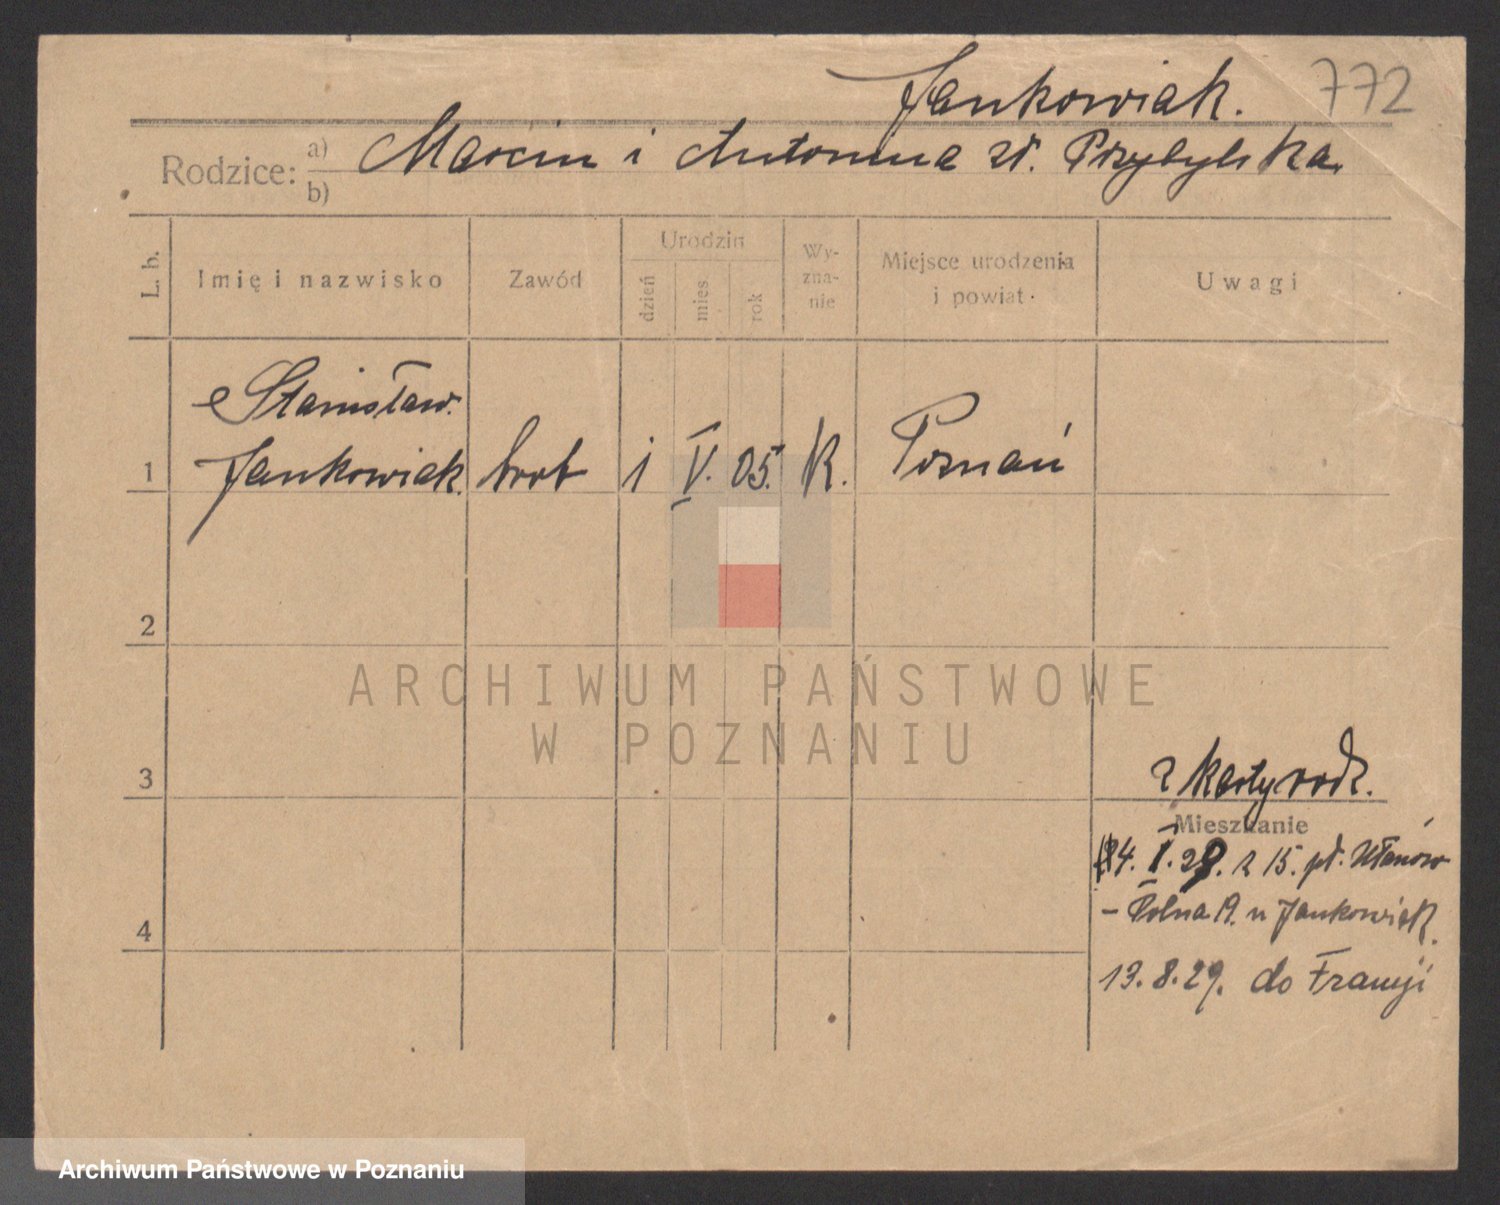 Jankowiak. 772
Rodzice: a) Marcin i Antonina zd. Przybylska.
b)
L. b.
Imię i nazwisko
Zawód
Urodzin
dzień
mies
rok
Wy-
zna-
nie
Miejsce urodzenia
i powiat
Uwagi
Stanisław
1 Jankowiak. brob 1 V. 05. K. Poznań
2
ARCHIWUM PAŃSTWOWE
W POZNANIU
3 z karty rodz.
Mieszkanie
14. I. 29. z 15. pł. Ułanów
4 – Polna 19. u Jankowiak.
13.8.29. do Francji
Archiwum Państwowe w Poznaniu